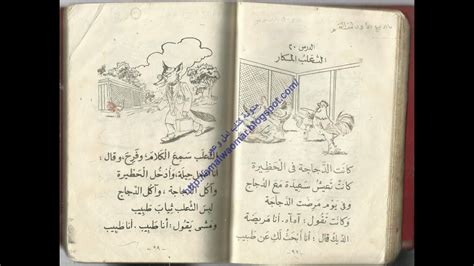 الدرس ٢٠
الثعلب المكار
كانت الدجاجة في الحظيرة
كانت تعيش سعيدة مع الدجاج
وفي يوم مرضت الدجاجة
وكانت تقول: آه آه. أنا مريضة
الديك قال: أنا أبحث لك عن طبيب
الثعلب سمع الكلام، وفرح، وقال:
حيلة، وأدخل الحظيرة
وآكل الدجاجة، وآكل الدجاج
لبس الثعلب ثياب طبيب
ومشى يقول: أنا طبيب. أنا طبيب
amalwaomar.blogspot.com